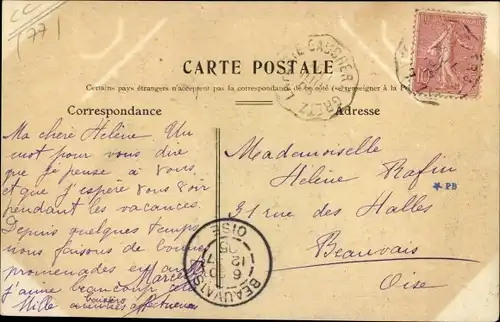 CC
(77)
CARTE POSTALE
Certains pays étrangers n'acceptent pas la correspondance de ce côté (se renseigner à la P
Correspondance
Adresse
Ma chère Hélène. Un
mot pour vous dire
que je pense à vous
et que j'espère vous voir
pendant les vacances.
Depuis quelques temps
nous faisons de bonnes
promenades en
Marcel
j'aime beaucoup
baisers
Mille amitiés affectueuses
Mademoiselle
Hélène Rafin
31 rue des Halles
Beauvais
Oise
PB
LA FERTÉ GAUCHER
GRETZ
BEAUVAIS
OISE